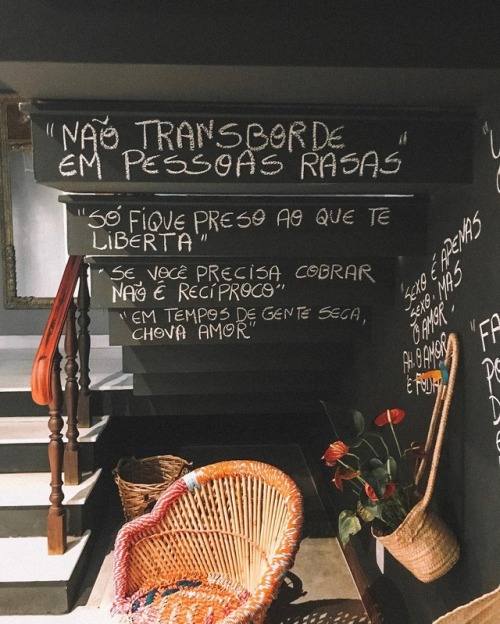 "NÃO TRANSBORDE
EM PESSOAS RASAS"
"SÓ FIQUE PRESO AO QUE TE
LIBERTA"
"SE VOCÊ PRECISA COBRAR
NÃO É RECÍPROCO"
"EM TEMPOS DE GENTE SECA,
CHOVA AMOR"
"SEXO É APENAS
SEXO, MAS
O AMOR,
AH, O AMOR
É
"FA
PO